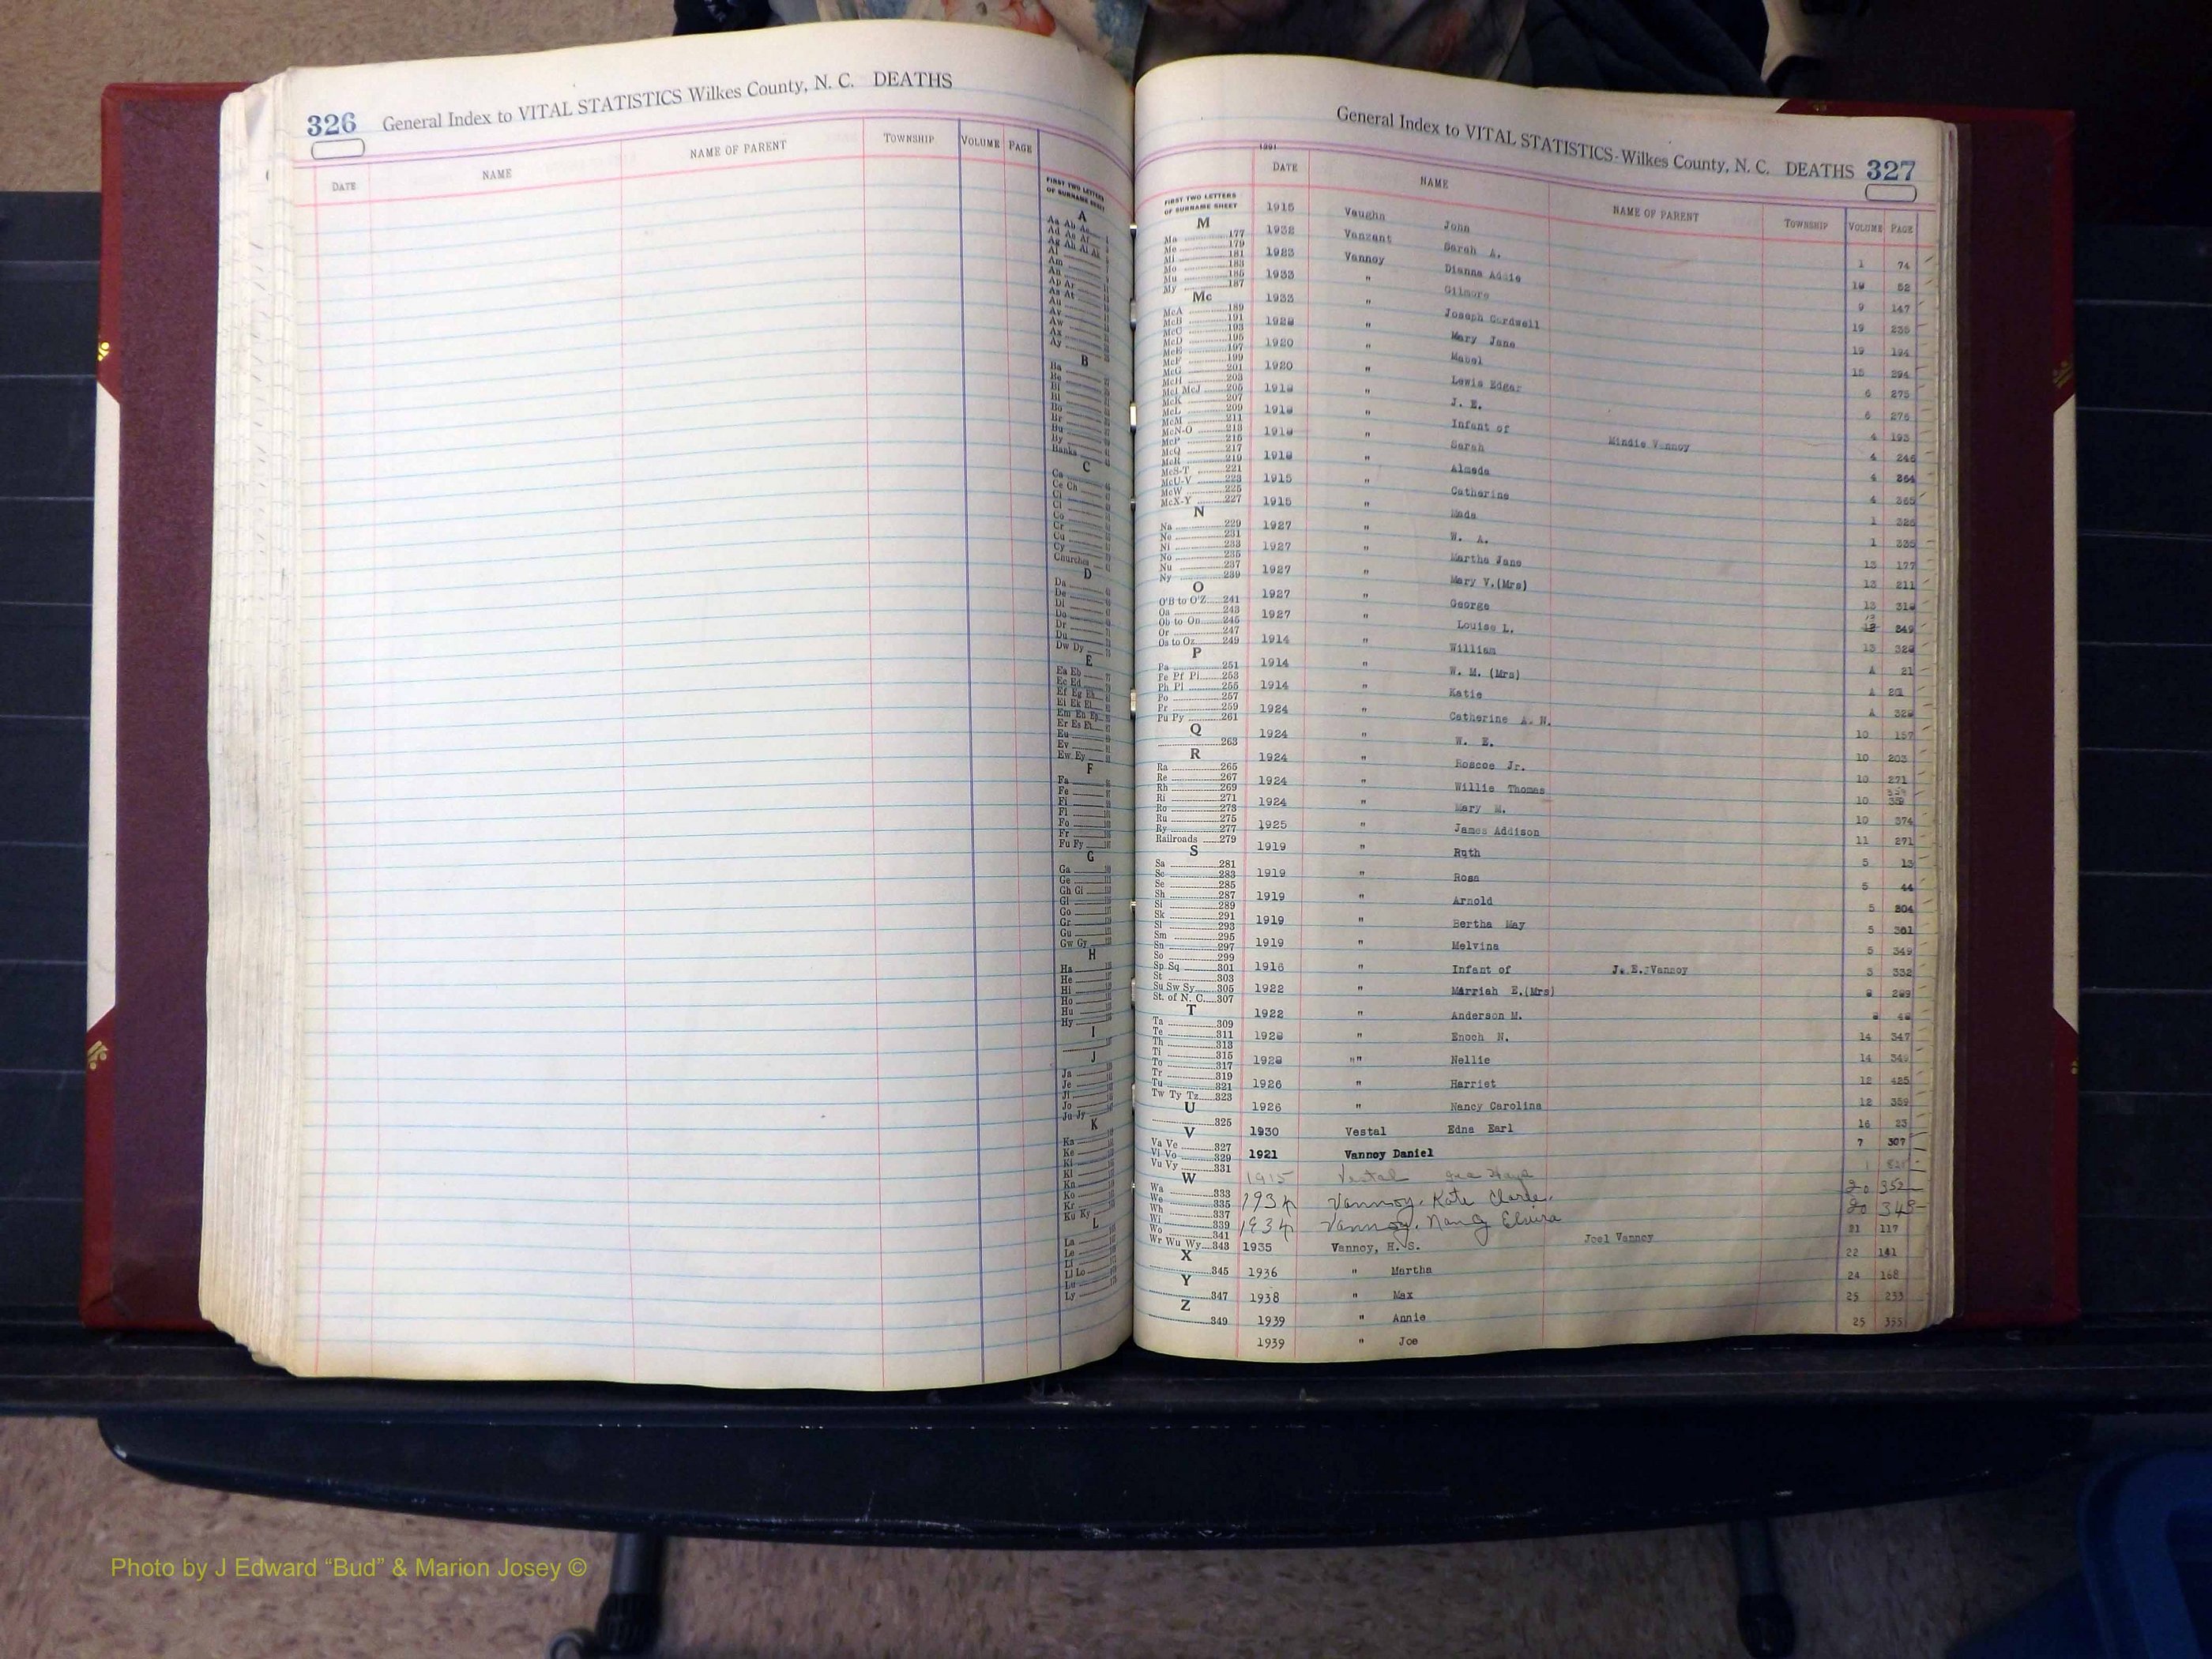 326 General Index to VITAL STATISTICS Wilkes County, N. C. DEATHS
DATE NAME NAME OF PARENT TOWNSHIP VOLUME PAGE
FIRST TWO LETTERS
OF SURNAME SHEET
A
Aa Ab Ac
Ad Ae Af
Ag Ah Ai Ak
Al
Am
An
Ap Ar
As At
Au
Av
Aw
Ax
Ay
B
Ba
Be
Bi
Bl
Bo
Br
Bu
By
Banks
C
Ca
Ce Ch
Ci
Cl
Co
Cr
Cu
Cy
Churches
D
Da
De
Di
Do
Dr
Du
Dw Dy
E
Ea Eb
Ec Ed
Ef Eg Eh
Ei Ek El
Em En Ep
Er Es Et
Eu
Ev
Ew Ey
F
Fa
Fe
Fi
Fl
Fo
Fr
Fu Fy
G
Ga
Ge
Gh Gi
Gl
Go
Gr
Gu
Gw Gy
H
Ha
He
Hi
Ho
Hu
Hy
I
J
Ja
Je
Ji
Jo
Ju Jy
K
Ka
Ke
Ki
Kl
Kn
Ko
Kr
Ku Ky
L
La
Le
Li
Ll Lo
Lu
Ly
General Index to VITAL STATISTICS-Wilkes County, N. C. DEATHS 327
DATE NAME NAME OF PARENT TOWNSHIP VOLUME PAGE
FIRST TWO LETTERS
OF SURNAME SHEET
M
Ma 177
Me 179
Mi 181
Mo 183
Mu 185
My 187
Mc
McA 189
McB 191
McC 193
McD 195
McE 197
McF 199
McG 201
McH 203
McI McJ 205
McK 207
McL 209
McM 211
McN-O 213
McP 215
McQ 217
McR 219
McS-T 221
McU-V 223
McW 225
McX-Y 227
N
Na 229
Ne 231
Ni 233
No 235
Nu 237
Ny 239
O
O'B to O'Z 241
Oa 243
Ob to On 245
Or 247
Os to Oz 249
P
Pa 251
Pe Pf Pi 253
Ph Pl 255
Po 257
Pr 259
Pu Py 261
Q
263
R
Ra 265
Re 267
Rh 269
Ri 271
Ro 273
Ru 275
Ry 277
Railroads 279
S
Sa 281
Sc 283
Se 285
Sh 287
Si 289
Sk 291
Sl 293
Sm 295
Sn 297
So 299
Sp Sq 301
St 303
Su Sw Sy 305
St. of N. C. 307
T
Ta 309
Te 311
Th 313
Ti 315
To 317
Tr 319
Tu 321
Tw Ty Tz 323
U
325
V
Va Ve 327
Vi Vo 329
Vu Vy 331
W
Wa 333
We 335
Wh 337
Wi 339
Wo 341
Wr Wu Wy 343
X
345
Y
347
Z
349
1915 Vaughn John 1 74
1932 Vanzant Sarah A. 52
1923 Vannoy Dianna Addie 9 147
1933 " Gilmore 19
1933 " Joseph Cardwell 19 194
" Mary Jane 15 294
1920 " Mabel 6 275
1920 " Lewis Edgar 6 276
" J. E. 4 193
" Infant of Mindie Vannoy 4 246
" Sarah 4 364
" Almeda 4 365
1915 " Catherine 1
1915 " Wade 1
1927 " W. A. 13 177
1927 " Martha Jane 13 211
1927 " Mary V.(Mrs) 13
1927 " George 13
1927 " Louise L. 13
1914 " William A 21
1914 " W. M. (Mrs) A
1914 " Katie A
1924 " Catherine A. N. 10 157
1924 " W. E. 10 203
1924 " Roscoe Jr. 10 271
1924 " Willie Thomas 10 359
1924 " Mary M. 10 374
1925 " James Addison 11 271
1919 " Ruth 5 13
1919 " Rosa 5 44
1919 " Arnold 5 204
1919 " Bertha May 5 301
1919 " Melvina 5 349
1916 " Infant of J. E. Vannoy 3 332
1922 " Marriah E.(Mrs)
1922 " Anderson M.
" Enoch N. 14 347
"" Nellie 14
1926 " Harriet 12 425
1926 " Nancy Carolina 12 359
1930 Vestal Edna Earl 16 23
1921 Vannoy Daniel 7 307
1915 Vestal
1934 Vannoy, Kate Clarke. 20 352
1934 Vannoy, Nancy Elvira 20 348
1935 Vannoy, H. S. Joel Vannoy 21 117
1936 " Martha 22 141
1938 " Max 24 168
1939 " Annie 25 233
1939 " Joe 25 355
Photo by J Edward “Bud” & Marion Josey ©